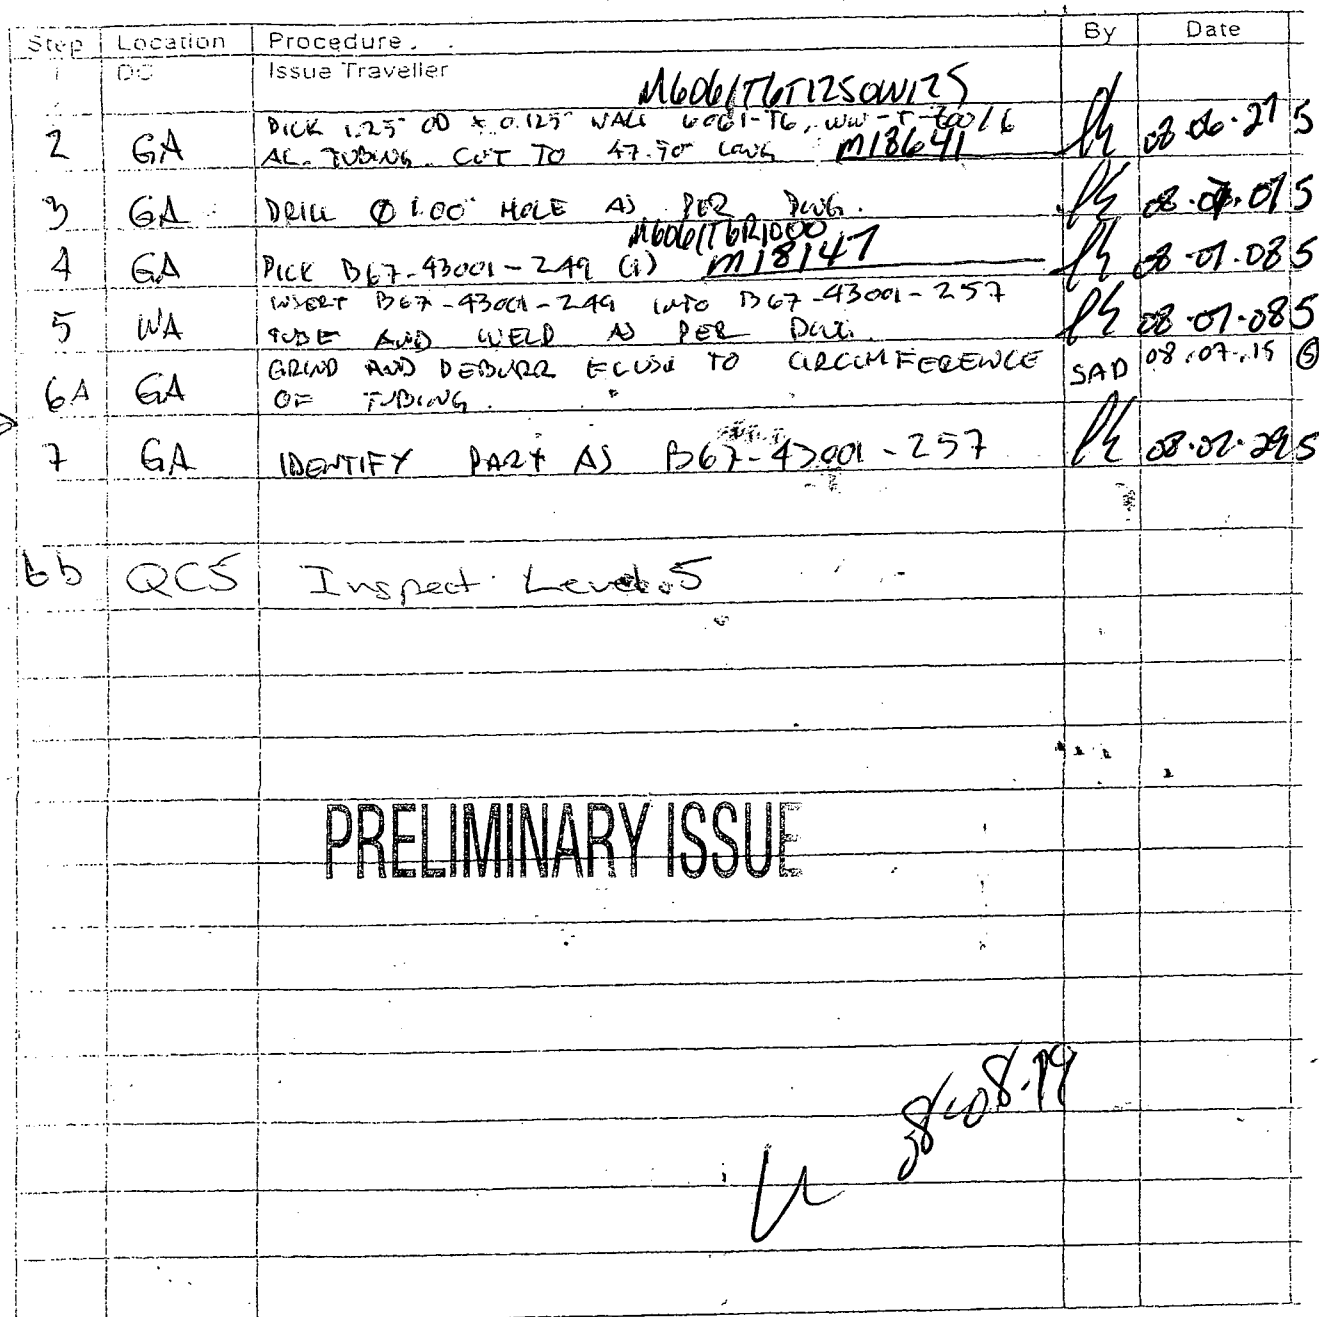 Step Location Procedure. By Date
1 DC Issue Traveller
M6061T6T1250W125
2 GA PICK 1.25" OD x 0.125" WALL 6061-T6, WW-T-700/6 08.06.27 5
AL. TUBING. CUT TO 47.50" LONG M18641
3 GA DRILL Ø 1.00" HOLE AS PER DWG. 08.07.01 5
M6061T6R1000
4 GA PICK B67-43001-249 (1) M18147 08.07.08 5
INSERT B67-43001-249 INTO B67-43001-257
5 WA TUBE AND WELD AS PER DWG. 08.07.08 5
GRIND AND DEBURR FLUSH TO CIRCUMFERENCE SAD 08.07.15 5
6A GA OF TUBING.
7 GA IDENTIFY PART AS B67-43001-257 5
6b QC5 Inspect Level 5
PRELIMINARY ISSUE